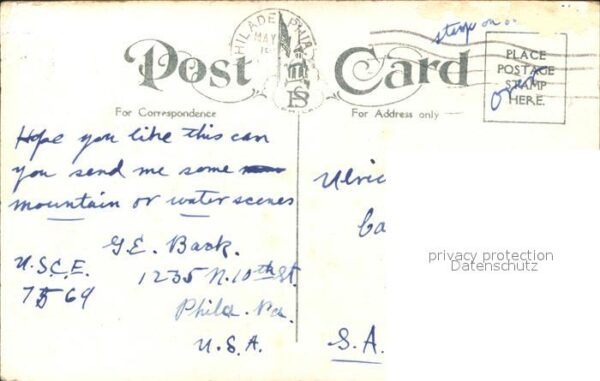 PHILADELPHIA
MAY
stamp on
Post Card
PLACE
POSTAGE
STAMP
HERE.
over
For Correspondence
For Address only
Hope you like this can
you send me some
mountain or water scenes
G.E. Back.
U.S.C.E.
7569
1235 N. 10th St.
Phila. Pa.
U.S.A.
Ulric
Ca
S.A.
privacy protection
Datenschutz